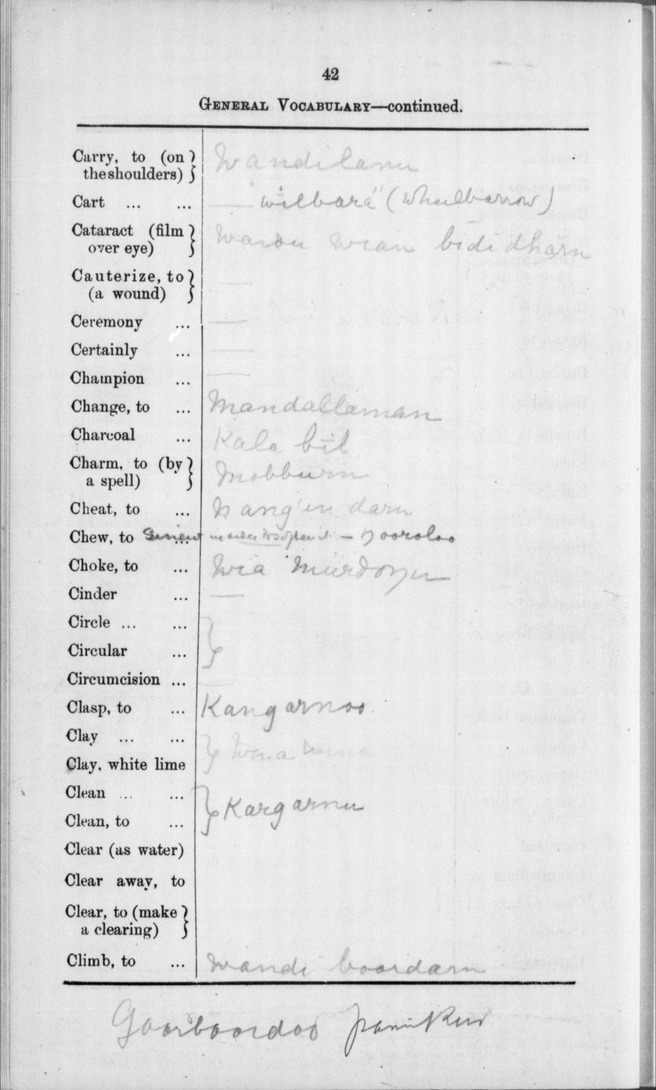 42
GENERAL VOCABULARY—continued.
Carry, to (on the shoulders) } Wandilanu
Cart ... ... — "wilbara" (wheelbarrow)
Cataract (film over eye) } Wardu wian bidi dharn
Cauterize, to (a wound) } —
Ceremony ... —
Certainly ... —
Champion ... —
Change, to ... Mandallaman
Charcoal ... Kala bil
Charm, to (by a spell) } Mobburn
Cheat, to ... darn
Chew, to — ngooroloo
Choke, to ... Wia
Cinder ... —
Circle ... ... }
Circular ...
Circumcision ... —
Clasp, to ... Kangarnoo
Clay ... ... }
Clay, white lime
Clean ... ... } Kargarnu
Clean, to ...
Clear (as water)
Clear away, to
Clear, to (make a clearing) }
Climb, to ... Wandi boordarn
Goorboordoo